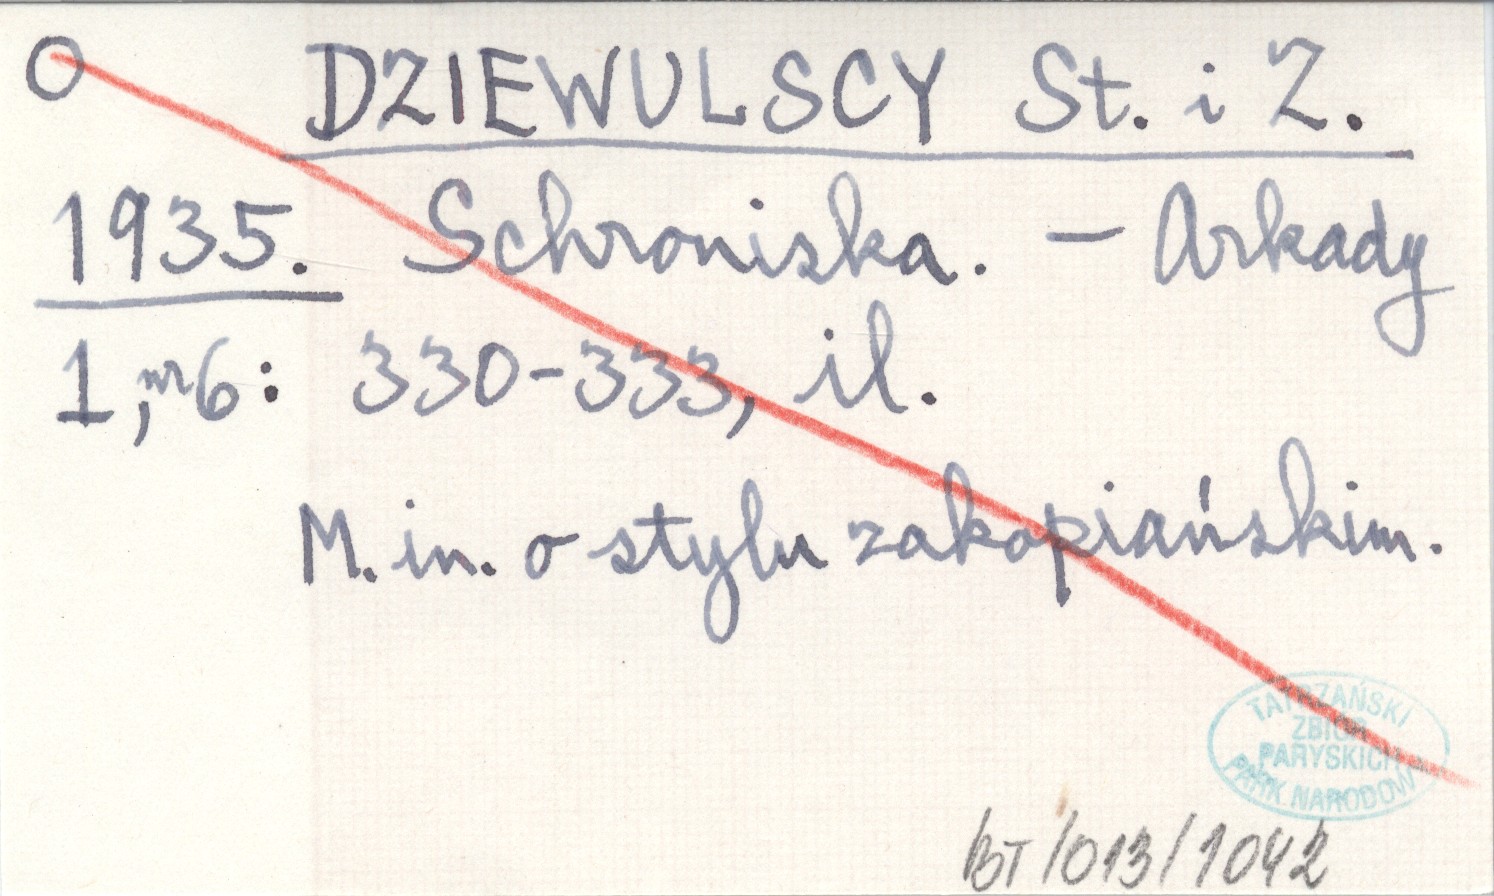 O DZIEWULSCY St. i Z.
1935. Schroniska. — Arkady
1, nr 6: 330-333, il.
M. in. o stylu zakopiańskim.
TATRZAŃSKI
ZBIÓR
PARYSKICH
PARK NARODOWY
BT/013/1042